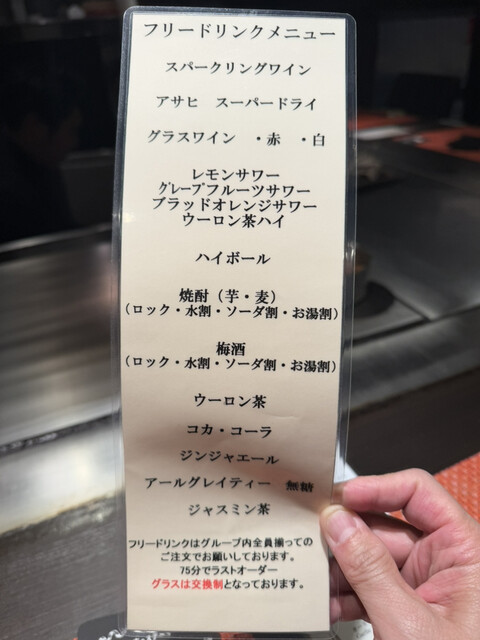 フリードリンクメニュー
スパークリングワイン
アサヒ　スーパードライ
グラスワイン　・赤　・白
レモンサワー
グレープフルーツサワー
ブラッドオレンジサワー
ウーロン茶ハイ
ハイボール
焼酎（芋・麦）
（ロック・水割・ソーダ割・お湯割）
梅酒
（ロック・水割・ソーダ割・お湯割）
ウーロン茶
コカ・コーラ
ジンジャエール
アールグレイティー　無糖
ジャスミン茶
フリードリンクはグループ内全員揃っての
ご注文でお願いしております。
75分でラストオーダー
グラスは交換制となっております。